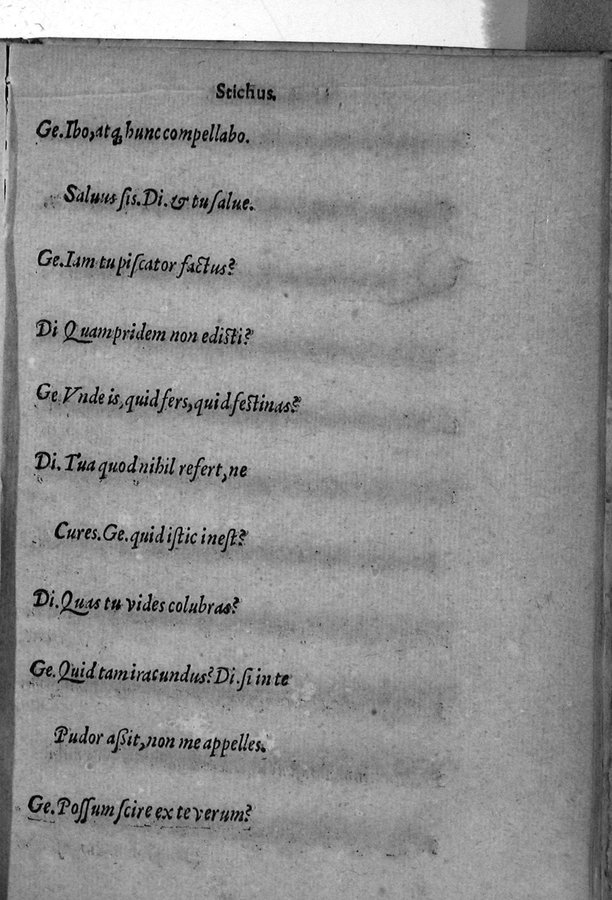 Stichus.
Ge. Ibo, atq; hunc compellabo.
Saluus sis. Di. & tu salue.
Ge. Iam tu piscator factus?
Di Quampridem non edisti?
Ge. Vnde is, quid fers, quid festinas?
Di. Tua quod nihil refert, ne
Cures. Ge. quid istic inest?
Di. Quas tu vides colubras?
Ge. Quid tam iracundus? Di. si in te
Pudor aßit, non me appelles.
Ge. Possum scire ex te verum?